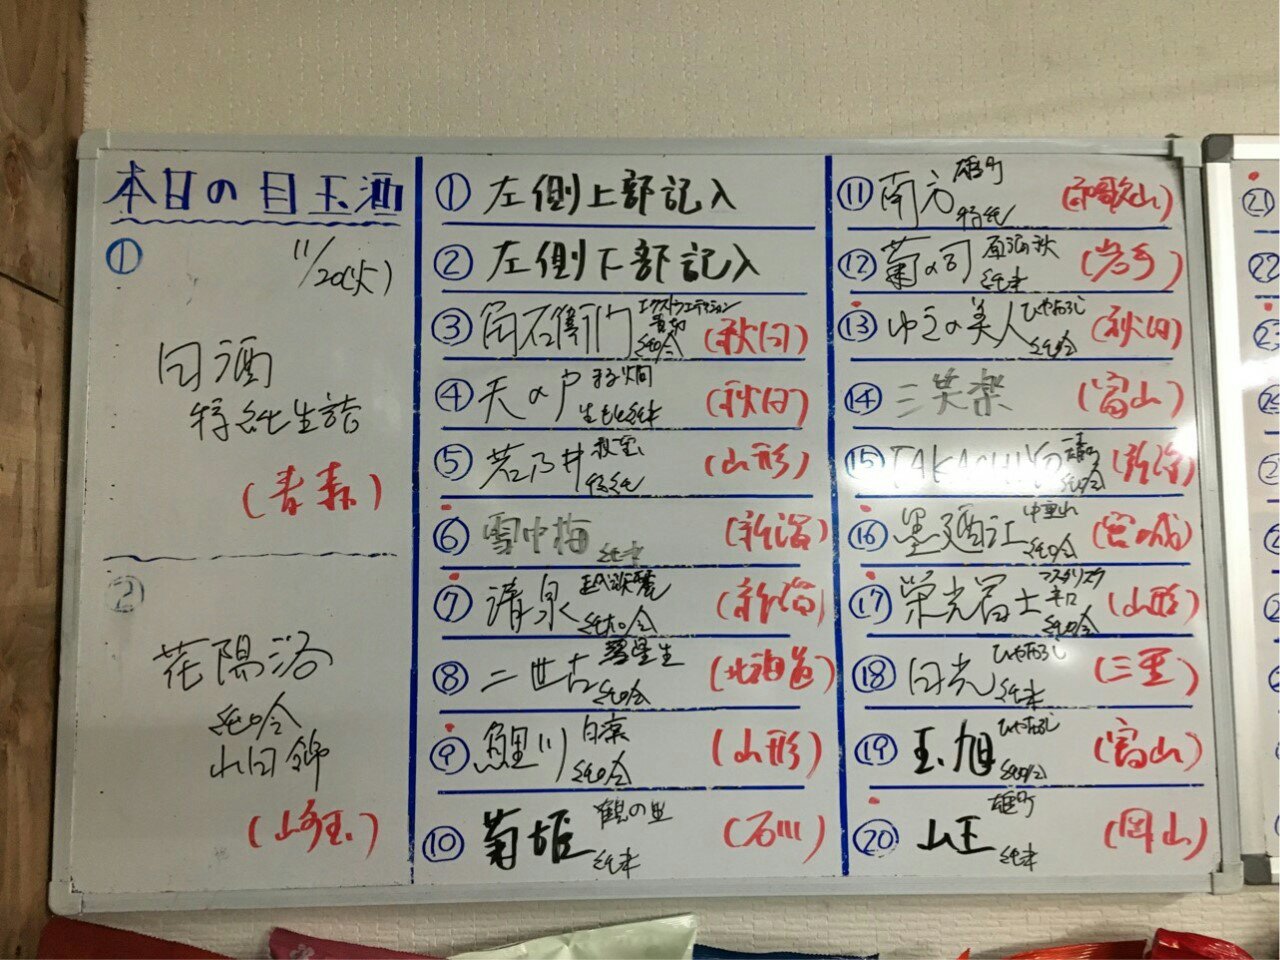 本日の目玉酒
① 11/20(火)
田酒
特純生詰
(青森)
②
花陽浴
純吟
山田錦
(埼玉)
① 左側上部記入
② 左側下部記入
③ 角右衛門 純吟 (秋田)
④ 天の戸 生もと純米 (秋田)
⑤ 若乃井 特純 (山形)
⑥ 雪中梅 純米 (新潟)
⑦ 清泉 純吟 (新潟)
⑧ 二世古 彗星生 純吟 (北海道)
⑨ 鯉川 純吟 (山形)
⑩ 菊姫 鶴の里 純米 (石川)
⑪ 南方 雄町 特純 (和歌山)
⑫ 菊の司 純米 (岩手)
⑬ ゆきの美人 ひやおろし 純吟 (秋田)
⑭ 三笑楽 (富山)
⑮ TAKACHIYO 純吟 (新潟)
⑯ 墨廼江 中垂れ 純吟 (宮城)
⑰ 栄光冨士 辛口 純吟 (山形)
⑱ 田光 ひやおろし 純米 (三重)
⑲ 玉旭 ひやおろし 純吟 (富山)
⑳ 山王 雄町 純米 (岡山)
㉑
㉒